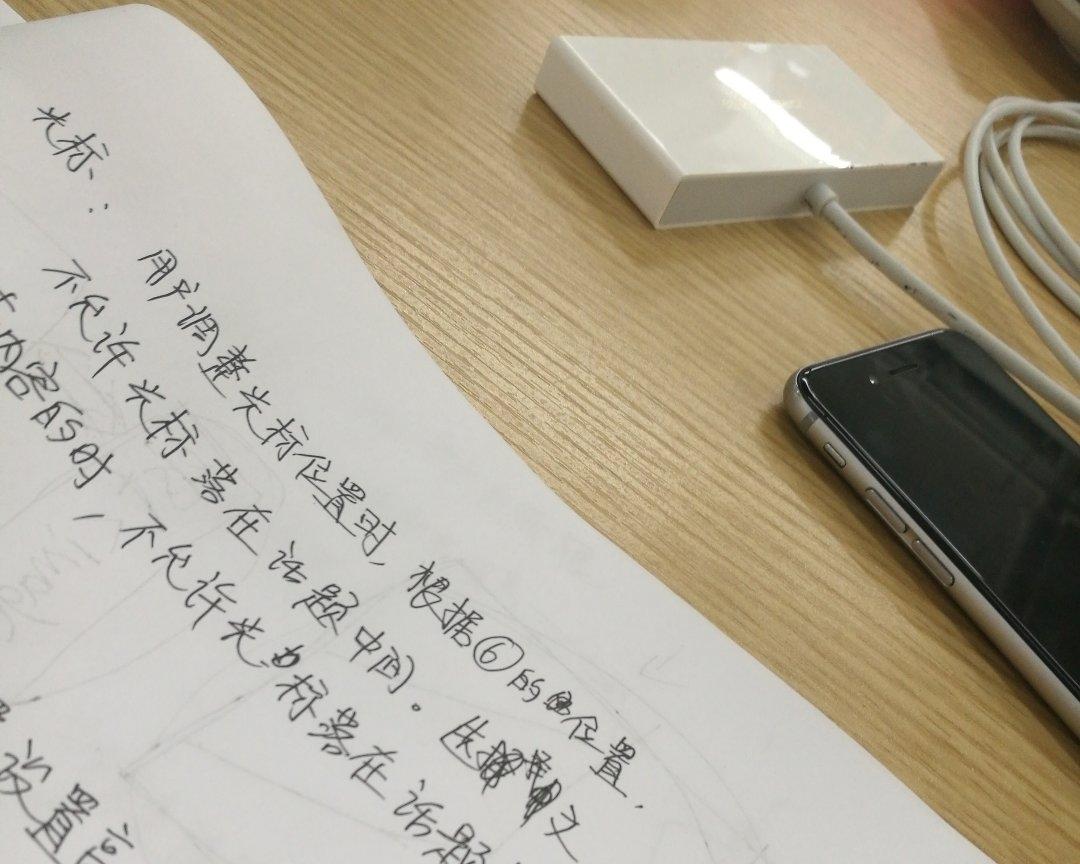 光标:
用户调整光标位置时, 根据⑥的位置,
不允许光标落在话题中间。选择
内容的时, 不允许光标落在话题
设置高